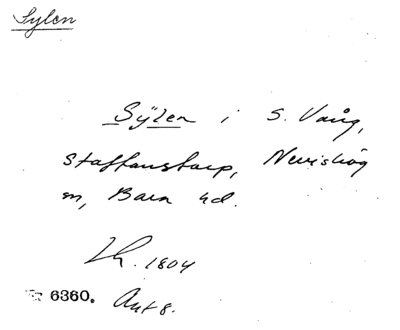 Sylen
Sÿlen i S. Vång,
Staffanstorp, Nevishög
sn, Bara hd.
Lk. 1804
Nr 6360. Ant 8.